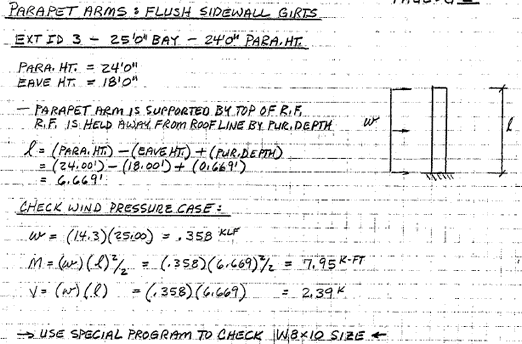 PARAPET ARMS : FLUSH SIDEWALL GIRTS
EXT ID 3 - 25'0" BAY - 24'0" PARA. HT.
PARA. HT. = 24'0"
EAVE HT. = 18'0"
- PARAPET ARM IS SUPPORTED BY TOP OF R.F.
R.F. IS HELD AWAY FROM ROOF LINE BY PUR. DEPTH
w
l
l = (PARA. HT.) - (EAVE HT.) + (PUR. DEPTH)
= (24.00') - (18.00') + (0.669')
= 6.669'
CHECK WIND PRESSURE CASE :
w = (14.3)(25.00) = .358 KLF
M = (w)(l)²/2 = (.358)(6.669)²/2 = 7.95 K-FT
V = (w)(l) = (.358)(6.669) = 2.39 K
→ USE SPECIAL PROGRAM TO CHECK W8x10 SIZE ←